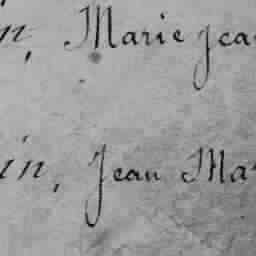 in, Marie Jea
in, Jean Ma